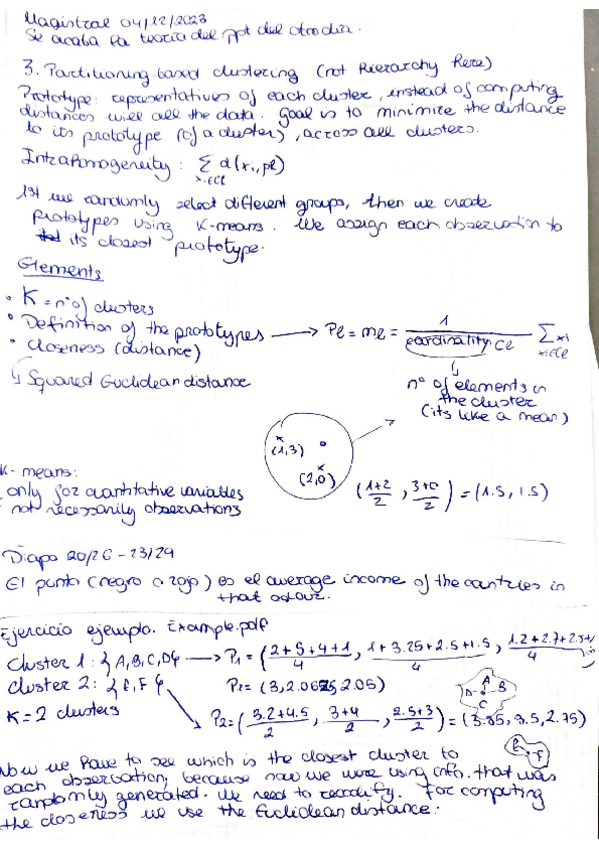 Magistral 04/12/2023
Se acaba la teoria del ppt del otro dia.
3. Partitioning-based clustering (not hierarchy here)
Prototype: representatives of each cluster, instead of computing
distances will all the data. Goal is to minimize the distance
to its prototype (of a cluster), across all clusters.
Intrahomogeneity: Σ d(xi, pl)
xi∈Cl
1st we randomly select different groups, then we create
prototypes using K-means. We assign each observation to
its closest prototype.
Elements
• K = nº of clusters
• Definition of the prototypes → Pl = ml = 1 / cardinality Cl Σ xi
xi∈Cl
• Closeness (distance)
↳ Squared Euclidean distance
nº of elements in
the cluster
(its like a mean)
x
(1,3)
x
(2,0)
(1+2/2, 3+0/2) = (1.5, 1.5)
K-means:
only for quantitative variables
not necessarily observations
Diapo 20/26 - 23/29
El punto (negro o rojo) es el average income of the countries in
that colour.
Ejercicio ejemplo. Example.pdf
Cluster 1: {A,B,C,D} → P1 = (2+5+4+1/4, 1+3.25+2.5+1.5/4, 1.2+2.7+2.3+/4
P1 = (3, 2.0625, 2.05)
Cluster 2: {E,F}
K=2 clusters
P2 = (3.2+4.5/2, 3+4/2, 2.5+3/2) = (3.85, 3.5, 2.75)
A
D B
C
E F
Now we have to see which is the closest cluster to
each observation, because now we were using info. that was
randomly generated. We need to recodify. For computing
the closeness we use the Euclidean distance: